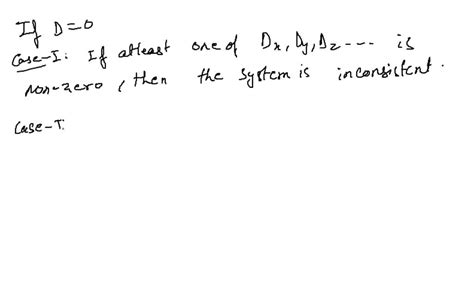 If D=0
Case-I: If atleast one of Dx, Dy, Dz --- is
non-zero, then the system is inconsistent.
Case-I